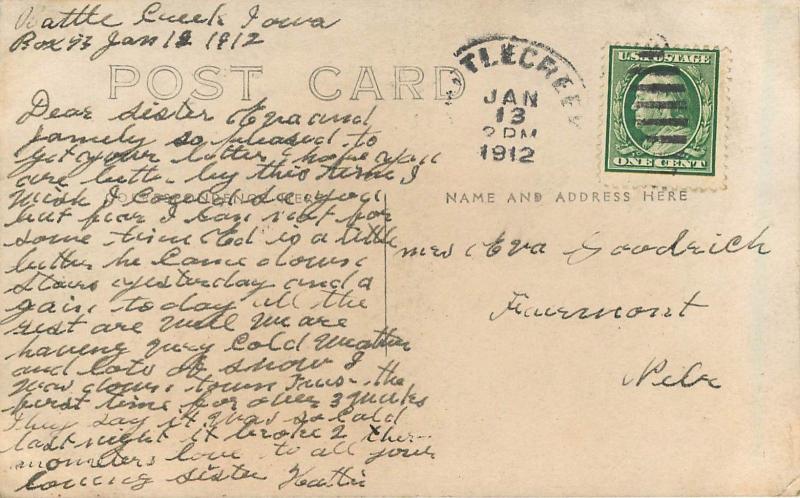 Battle Creek Iowa
Box 93 Jan 12 1912
POST CARD
Dear Sister Eva and
family so pleased to
get your letter hope you
are bettr by this time I
wish I could see you
but fear I can not for
some time Ed is a little
better he came down
stairs yesterday and a
gain to day all the
rest are well We are
having very cold weather
and lots of snow I
was down town Tues - the
first time for over 3 weeks
They say it was so cold
last night it broke 2 ther-
mometers love to all your
loving sister Hattie
CORRESPONDENCE HERE
TTLE CREEK
JAN
13
2 PM
1912
U.S. POSTAGE
ONE CENT
NAME AND ADDRESS HERE
Mrs Eva Goodrich
Fairmont
Nebr